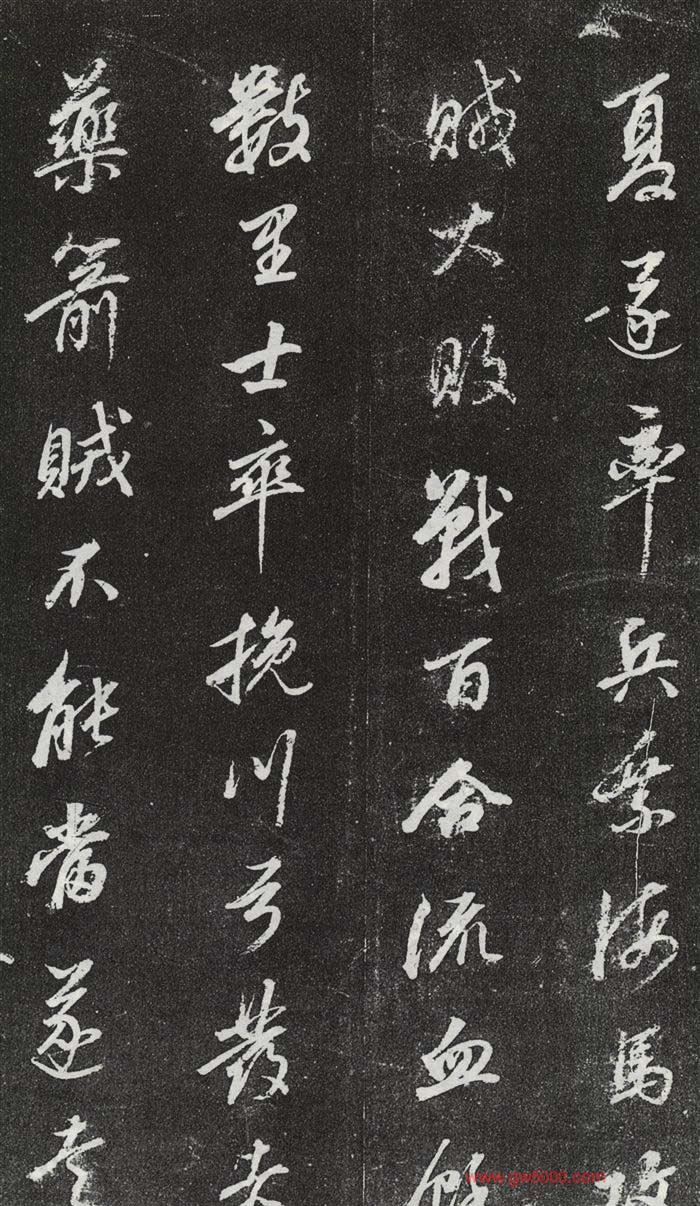 夏遂率兵乘海馬攻
賊大敗戰百合流血
數里士卒挽川弓發毒
藥箭賊不能當遂走
www.gw5000.com